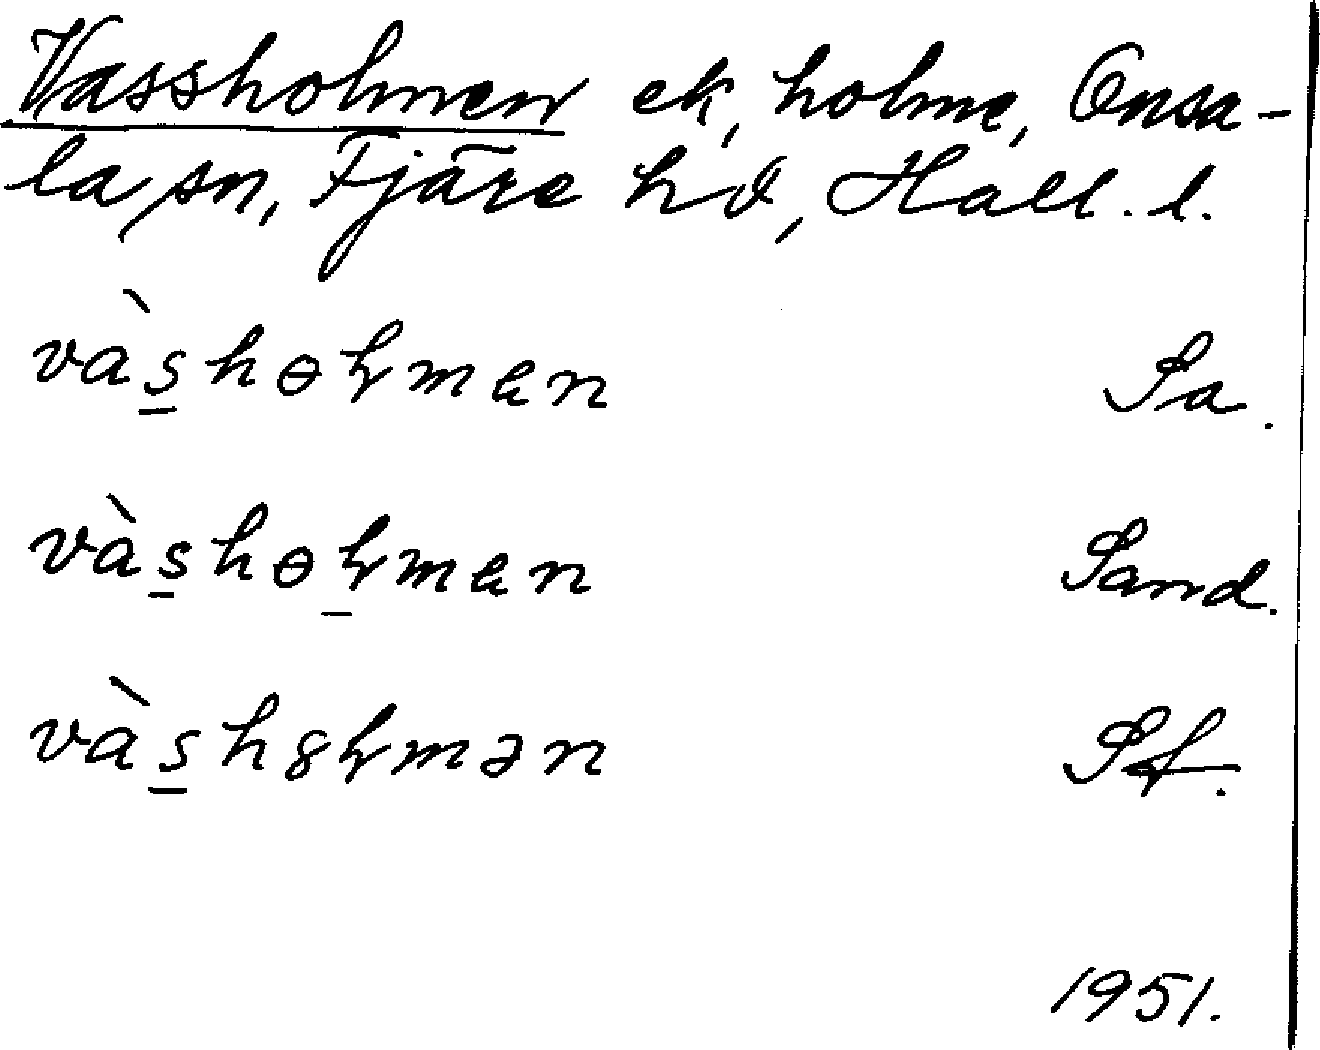 Vassholmen ek, holme, Onsa-
la sn, Fjäre hd, Hall. l.
vàs̲hɵɫmɐn Sa.
vàs̲hɵɫ̲mɐn Sand.
vàs̲h8ɫmən Sf.
1951.